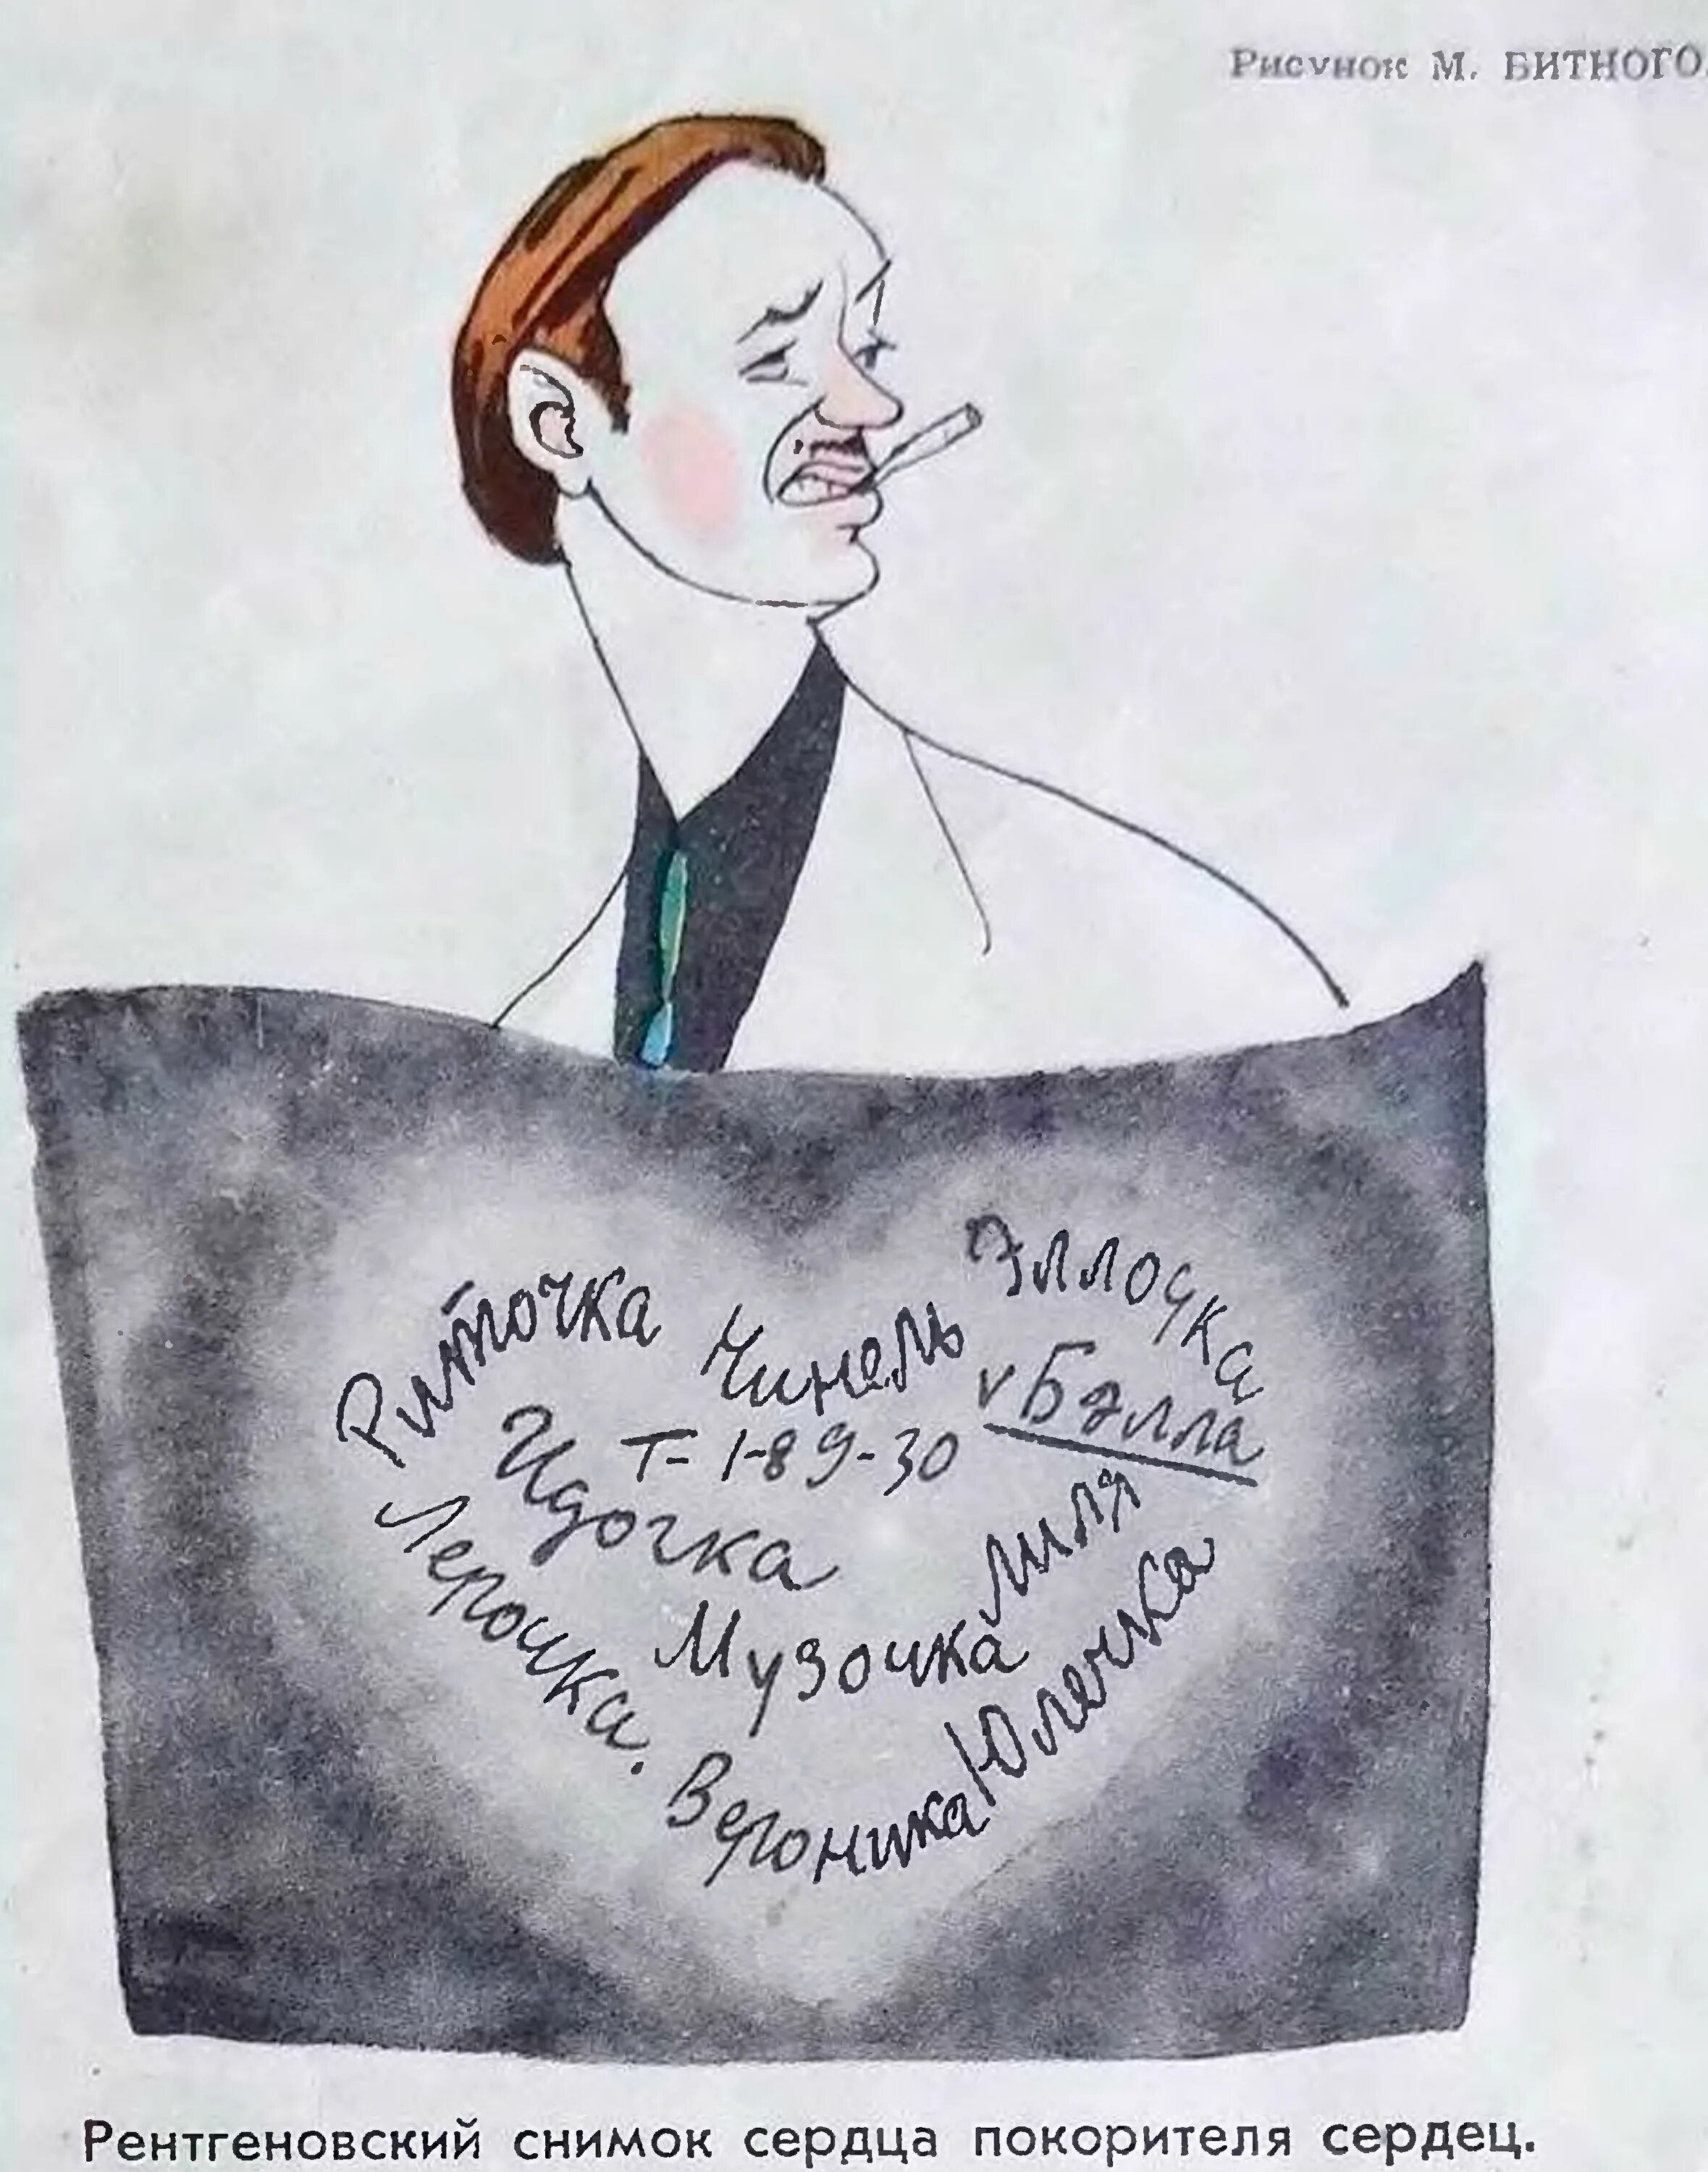 Рисунок М. БИТНОГО.
Риточка
Нинель
Эллочка
v Бэлла
Т- 1-89-30
Идочка
Лиля
Лерочка.
Музочка
Юлечка
Вероника
Рентгеновский снимок сердца покорителя сердец.